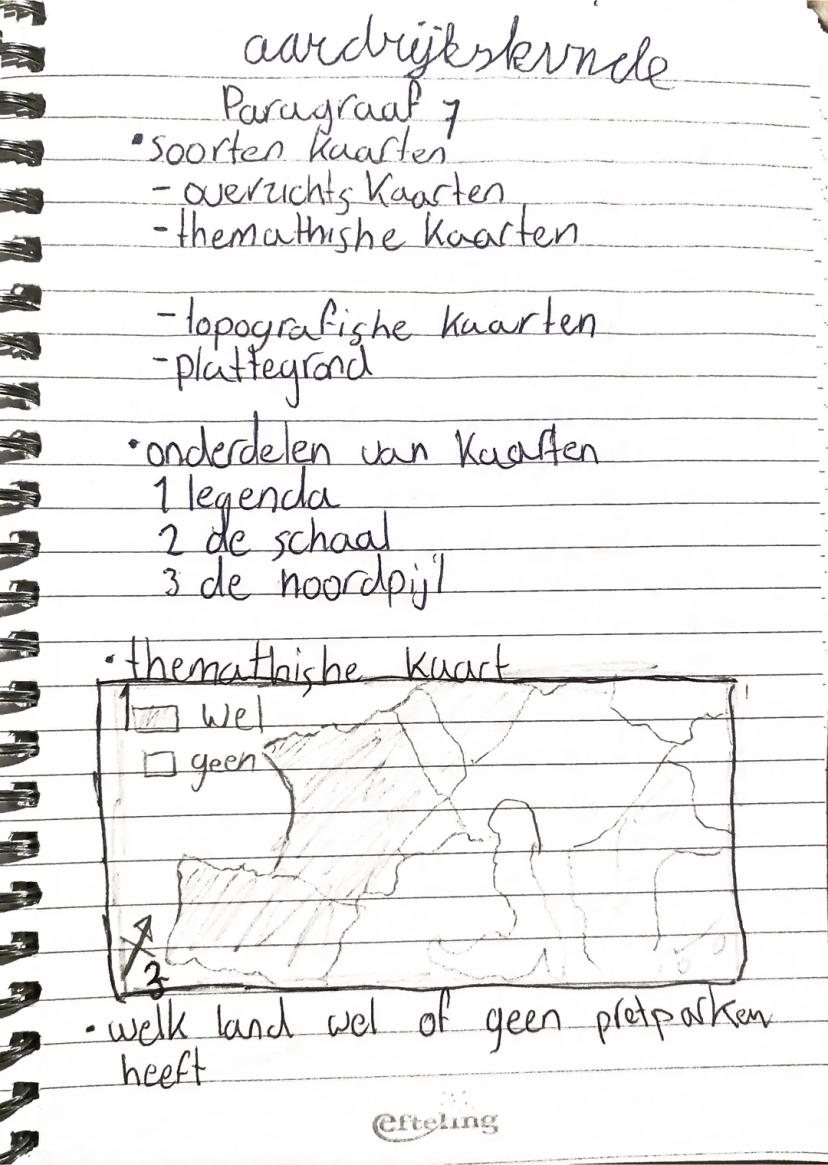 aardrijkskunde
Paragraaf 7
• soorten kaarten
- overzichts kaarten
- themathishe kaarten
- topografishe kaarten
- plattegrond
• onderdelen van kaarten
1 legenda
2 de schaal
3 de noordpijl
• themathishe kaart
1
wel
geen
3
• welk land wel of geen pretparken
heeft
efteling